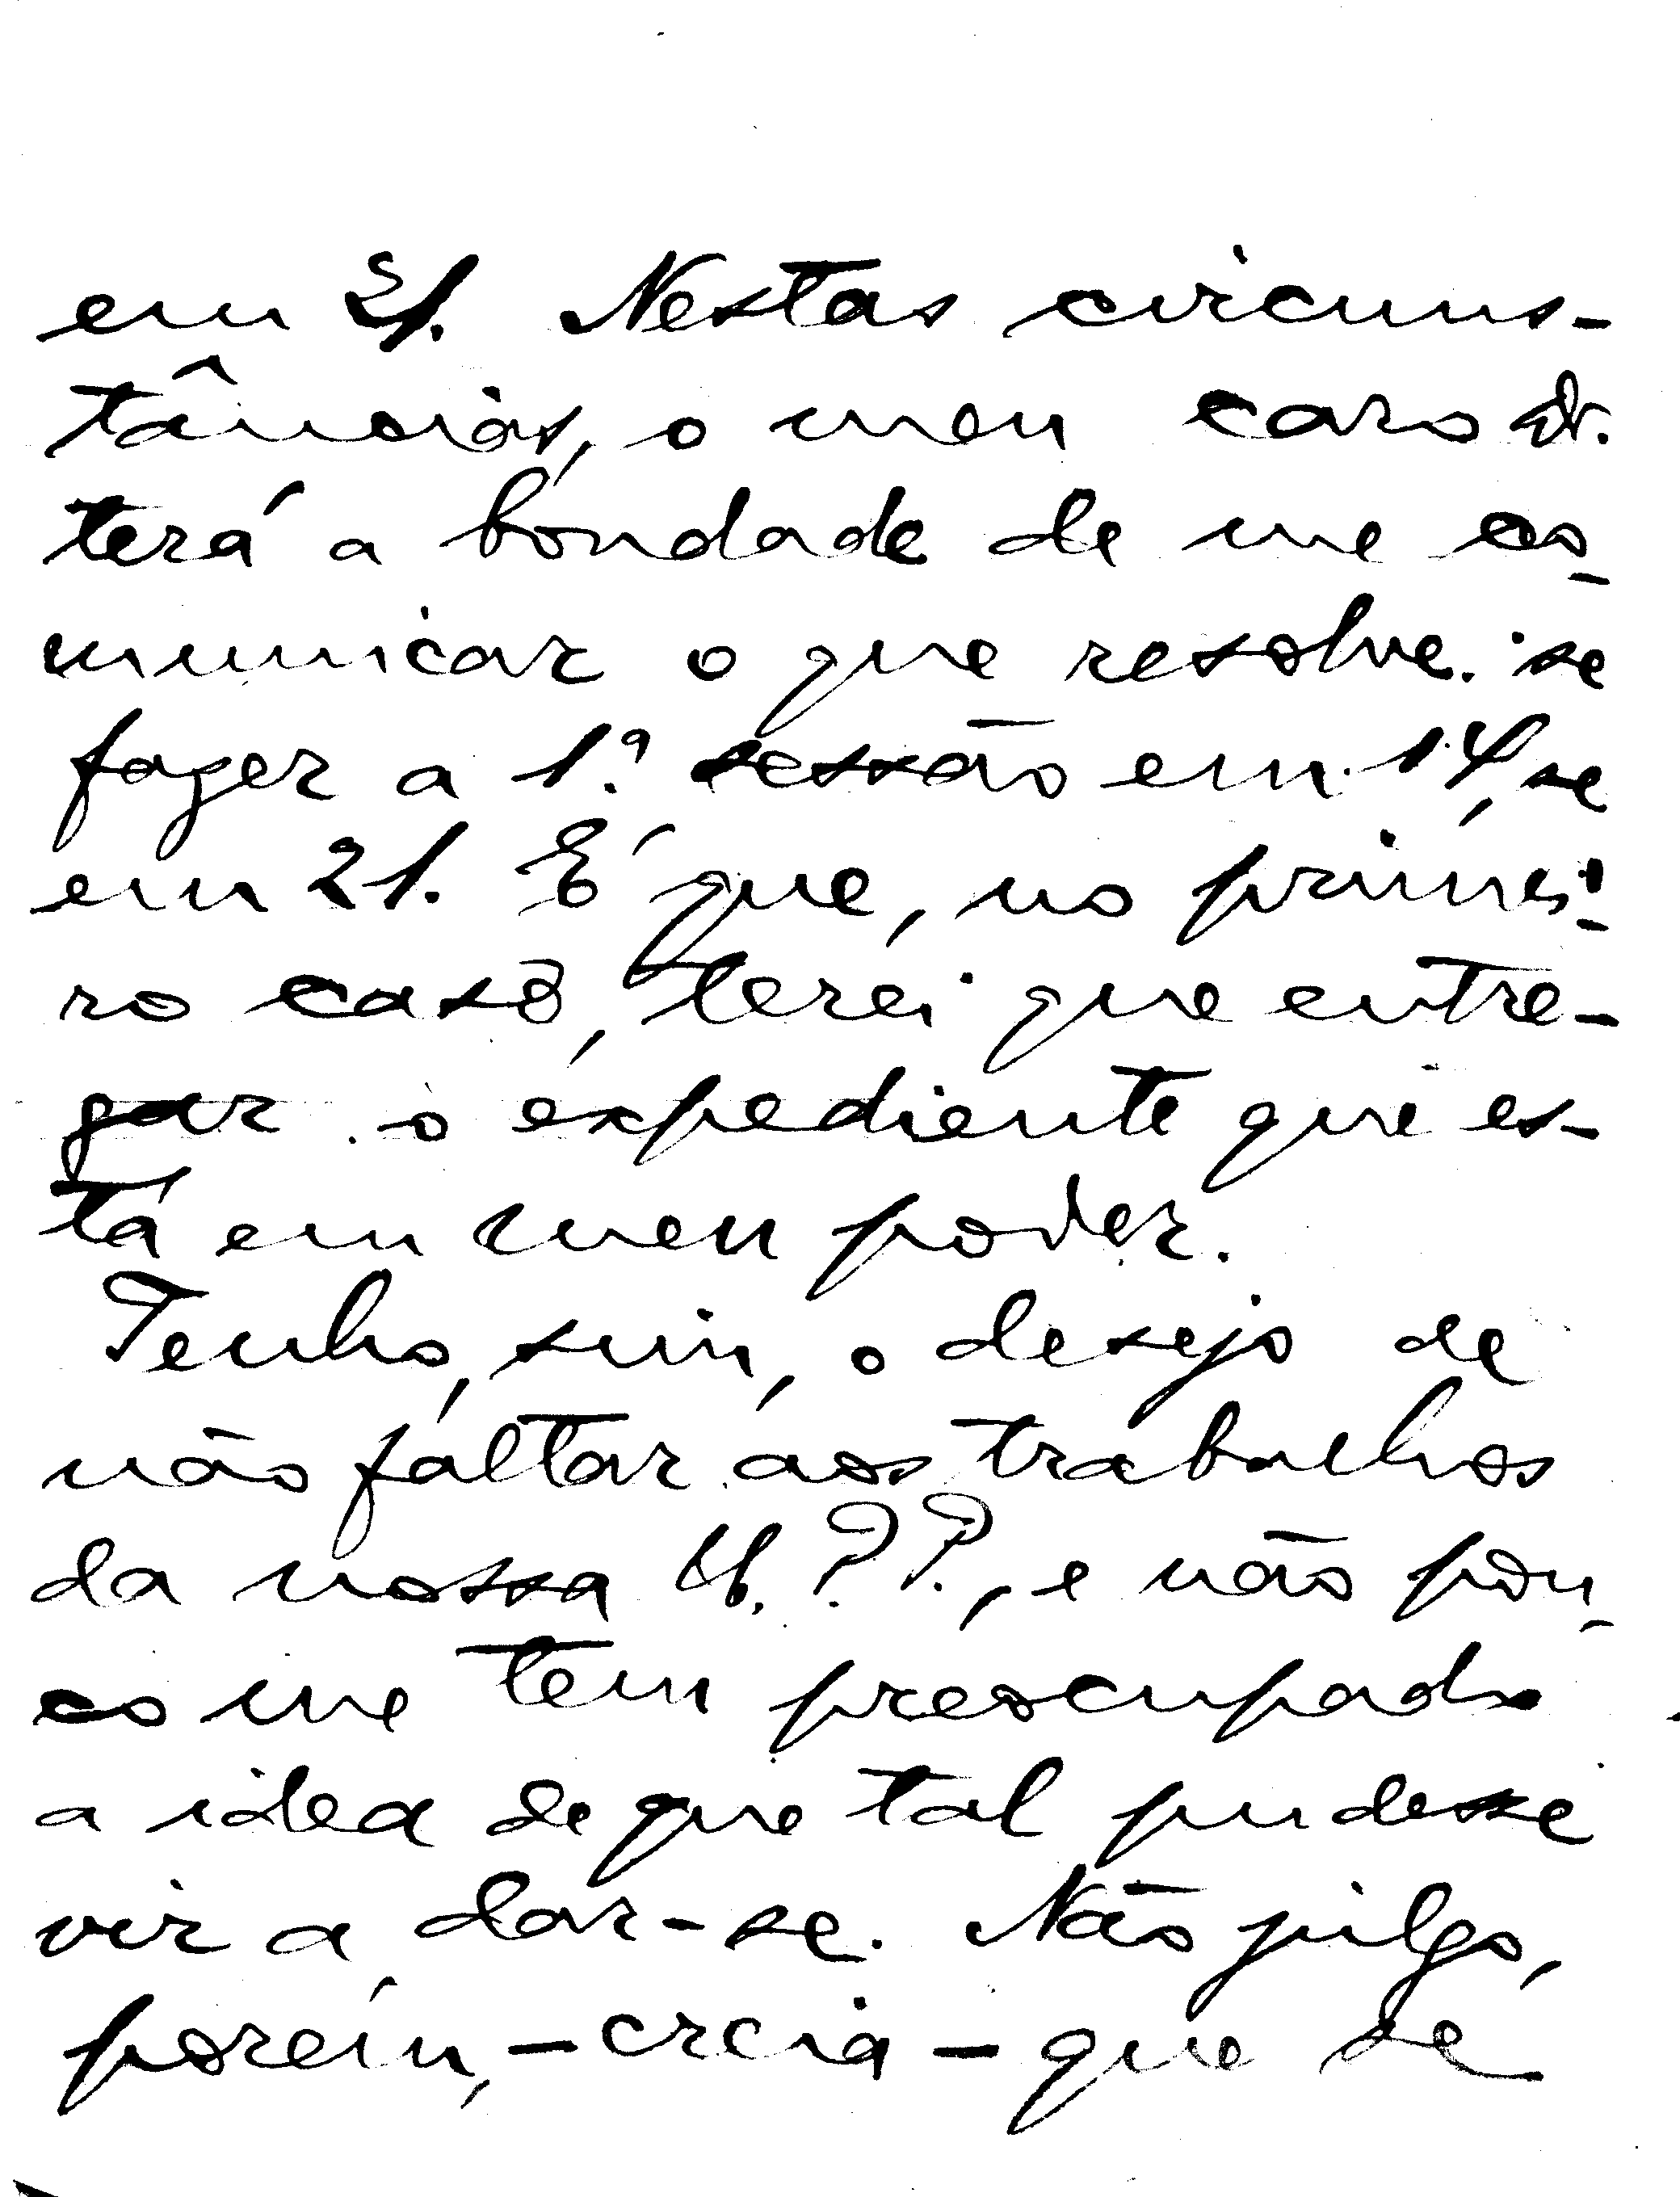 em 21. Nestas circuns-
tâncias, o meu caro Dr.
terá a bondade de me co-
municar o que resolve: se
fazer a 1.ª sessão em 14, se
em 21. É que, no primei-
ro caso, terei que entre-
gar o expediente que es-
tá em meu poder.
Tenho, sim, o desejo de
não faltar aos trabalhos
da nossa U. P. P., e não pou-
co me tem preocupado
a idea de que tal pudesse
vir a dar-se. Não julgo,
porém, - creia - que se